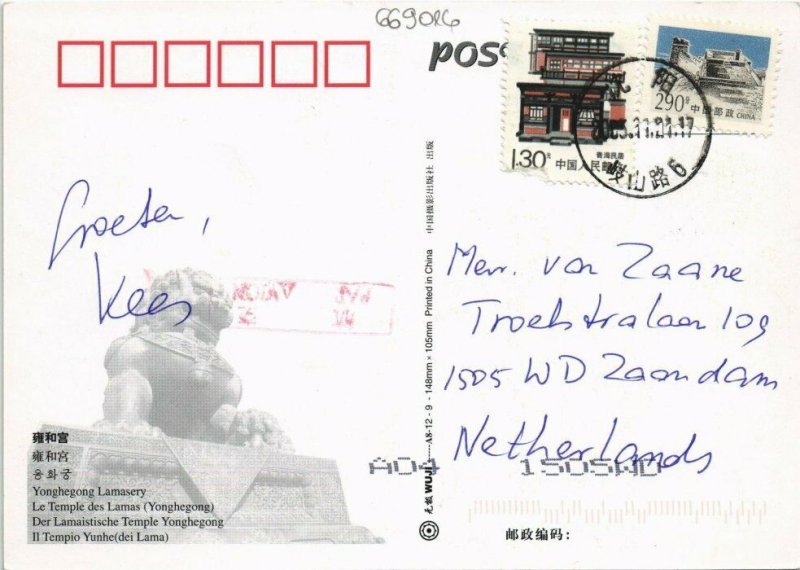 669016
POS
1.30元
中国人民邮
青海民居
290分
中国邮政 CHINA
沈 阳
2005.11.21.17
岐山路 6
Groeten,
Kees
Mevr. van Zaane
Troelstralaan 109
1505 WD Zaandam
Netherlands
雍和宫
雍和宮
옹화궁
Yonghegong Lamasery
Le Temple des Lamas (Yonghegong)
Der Lamaistische Temple Yonghegong
Il Tempio Yunhe(dei Lama)
无极 WUJI——A8-12 - 9 - 148mm × 105mm Printed in China 中国摄影出版社 出版
A04 1505WD
邮政编码：